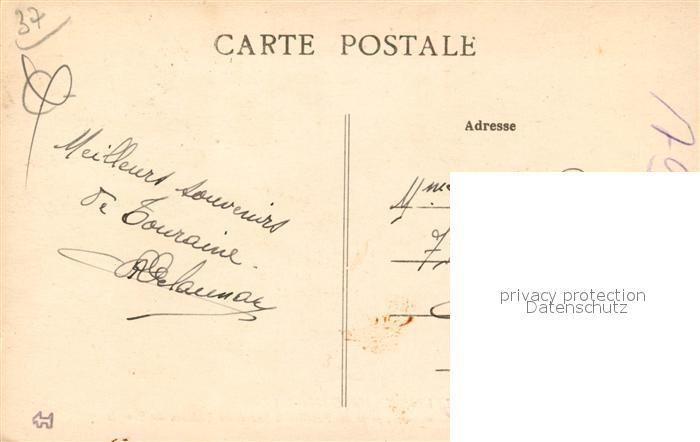 37
CARTE POSTALE
Adresse
Meilleurs souvenirs
de Touraine.
Delaunay
Mme
7
privacy protection
Datenschutz